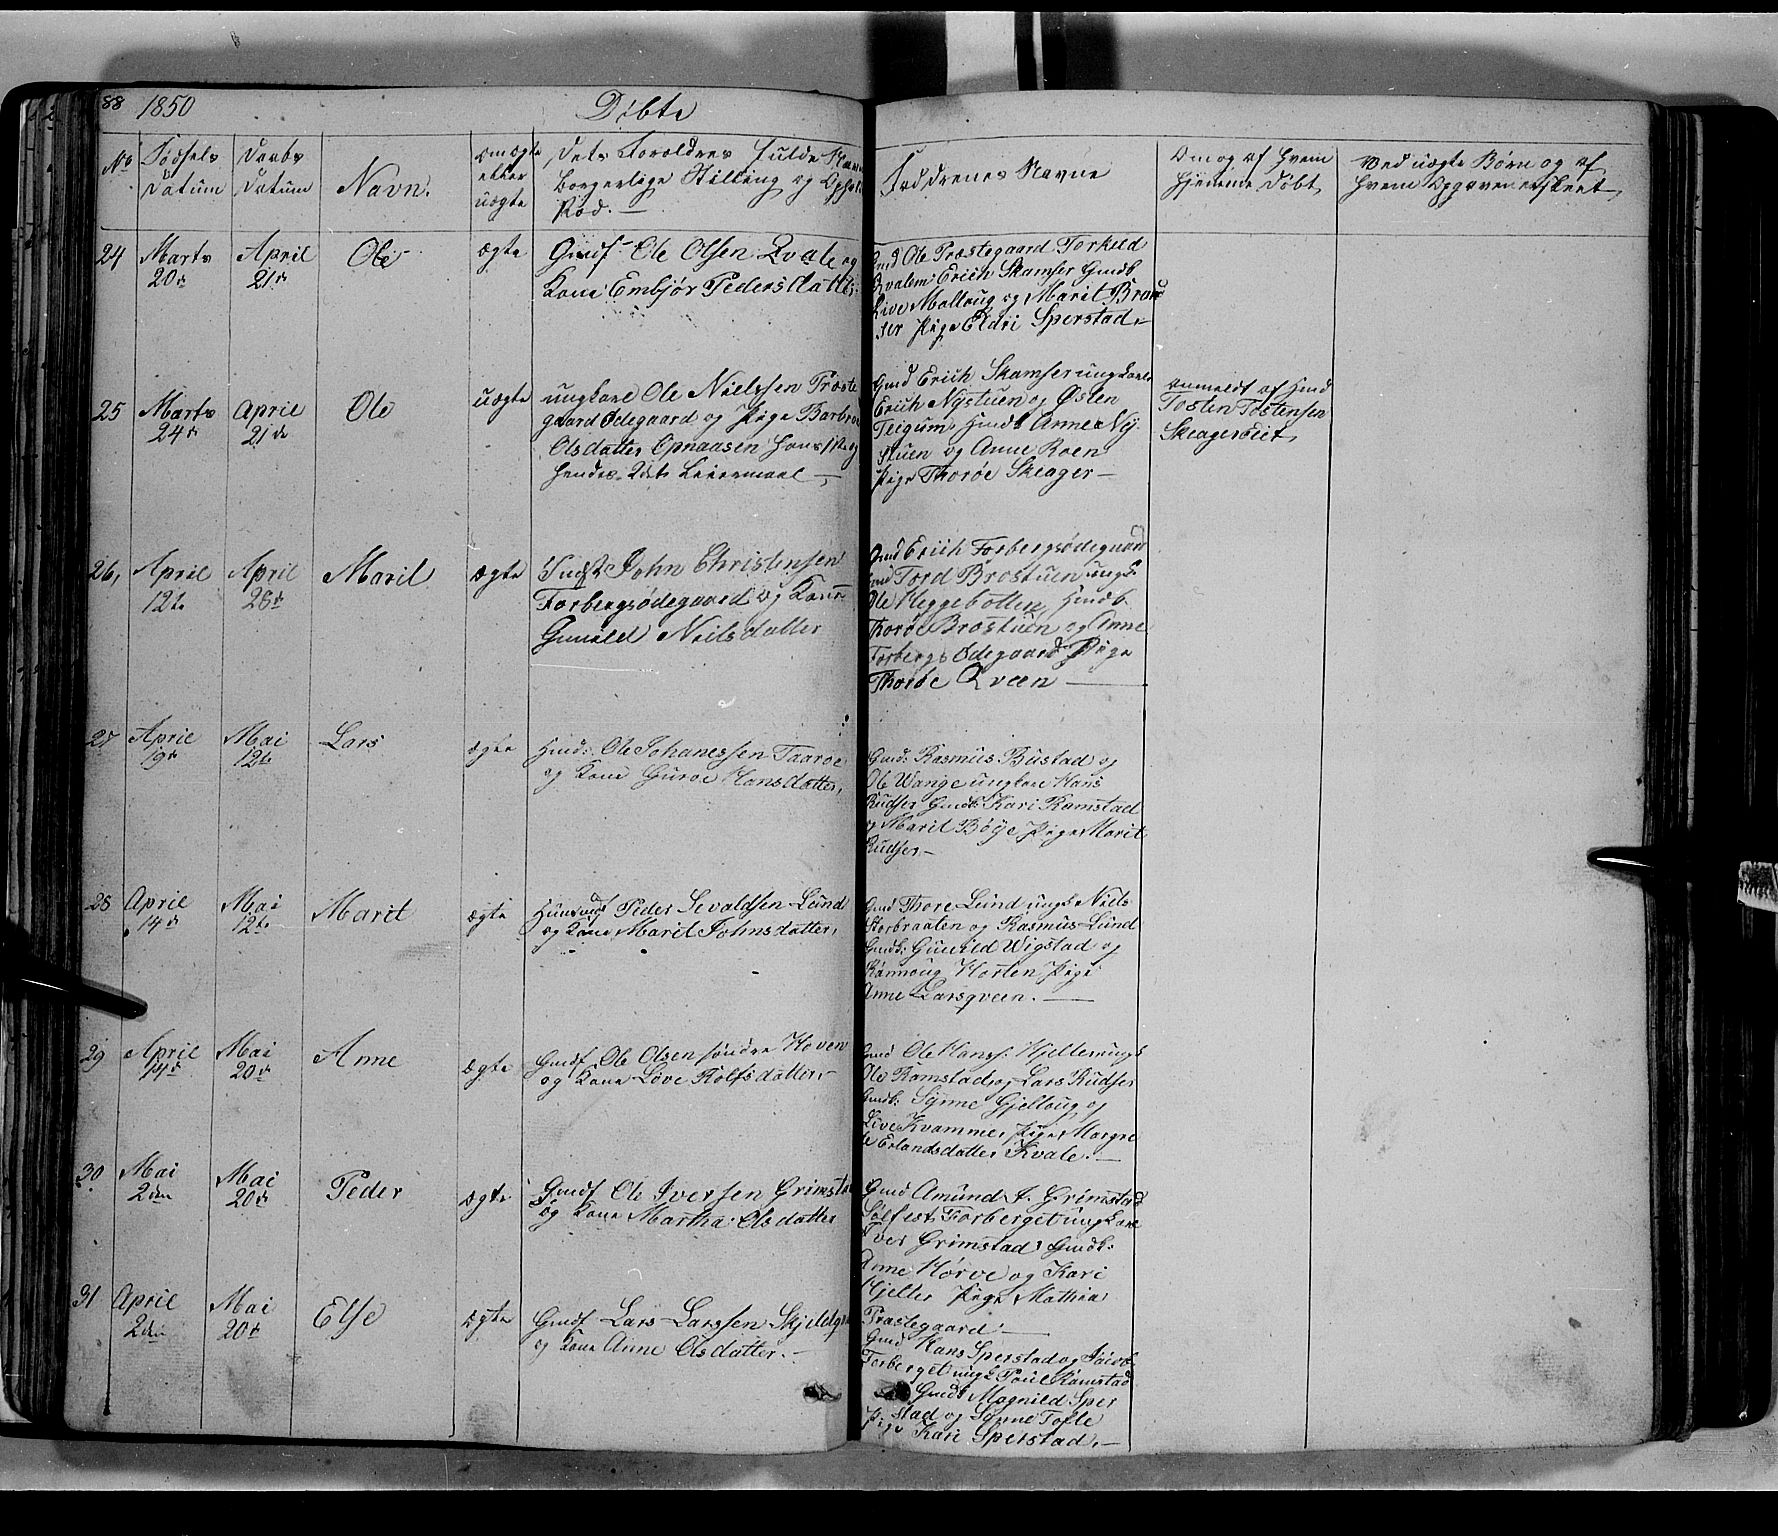 88 1850 Döbte
No
Födsels Datum
Daabs Datum
Navn.
om ægte eller uægte
dets Foreldres fulde Navne
borgerlige Stilling og Opholds
Sted. —
Faddrenes Navne
Om og af hvem
hjemme Döbt
Ved uægte Børn og af
hvem Opgaven er skeet
24 Marts 20de April 21de Ole ægte
Gmdf Ole Olsen Qvale og
Kone Embjör Pedersdatter
Gmd Ole Præstegaard Torkild
Qvalem Erich Skamser Gmdk
Live Mallaug og Marit Bran
ser Pige Eldri Sperstad
25 Marts 24de April 21de Ole uægte
ungkarl Ole Nielssen Præste
gaard Ödegaard og Pige Barbroe
Olsdatter Opnaasen hans 1ste og
hendes 2det Leiermaal —
Gmd Erich Skamser ungkarle
Erich Nystuen og Østen
Teigum Hmdk Anne Ny
stuen og Anne Roen
Pige Thoröe Skeager —
anmeldt af Hmd
Tosten Tostensen
Skeagerøiet
26, April 12te April 28de Marit ægte
Indst John Christensen
Forbergsödegaard og Kone
Gunild Nielsdatter
Gmd Erich Forbergsödegaard
Tord Brostuen ungk
Ole Heggebotten, Hmdk.
Thoröe Brostuen og Anne
Forbergs Ödegaard Pige
Thoröe Qveen —
27 April 19de Mai 12te Lars ægte
Hmd: Ole Johanessen Taaröe
og Kone Guroe Hansdatter,
Gmd: Rasmus Bustad og
Ole Wange ungkarl Hans
Rudser Gmdk: Kari Ramstad
og Marit Böye Pige Marit
Rudser —
28 April 14de Mai 12te Marit ægte
Huusmdf Peder Sevaldsen Lund
og Kone Marit Johnsdatter,
Gmd Thore Lund ungk Niels
Storbraaten og Rasmus Lund
Gmdk: Gunild Wigstad og
Rannoug Horten Pige
Anne Larsqveen. —
29 April 14de Mai 20de Anne ægte
Gmdf Ole Olsen søndre Hoven
og Kone Live Rolfsdatter,
Gmd Ole Hanss: Hjelle ungk
Ole Ramstad og Lars Rudser
Gmdk: Synne Gjelloug og
Live Kvamme, Pige Margre
te Erlandsdatter Kvale. —
30 Mai 2den Mai 20de Peder ægte
Gmdf Ole Iversen Grimstad
og Kone Martha Olsdatter
Gmd Amund I. Grimstad
Sölfest Forberget ungkarl
Iver Grimstad Gmdk:
Anne Hörve og Kari
Hjelle, Pige Mathia
Præstegaard —
31 April 2den Mai 20de Else ægte
Gmdf Lars Larssen
og Kone Anne Olsdatter. —
Gmd Hans Sperstad og
Forberget ungk Poul Ramstad
Gmdk Magnild Sper
stad og Synne Tofte
Pige Kari Sperstad. —